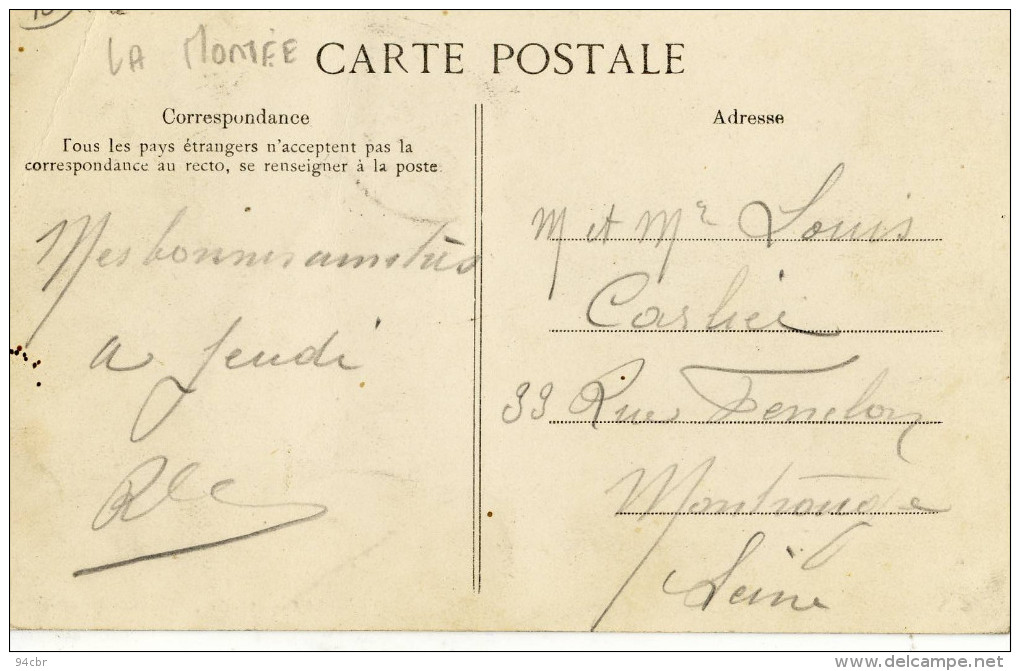 LA MONTÉE
CARTE POSTALE
Correspondance
Tous les pays étrangers n'acceptent pas la
correspondance au recto, se renseigner à la poste
Mes bonnes amitiés
a Jeudi
Adresse
M et Me Louis
Carlier
33 Rue Fenelon
Montrouge
Seine
94cbr
www.delcampe.net